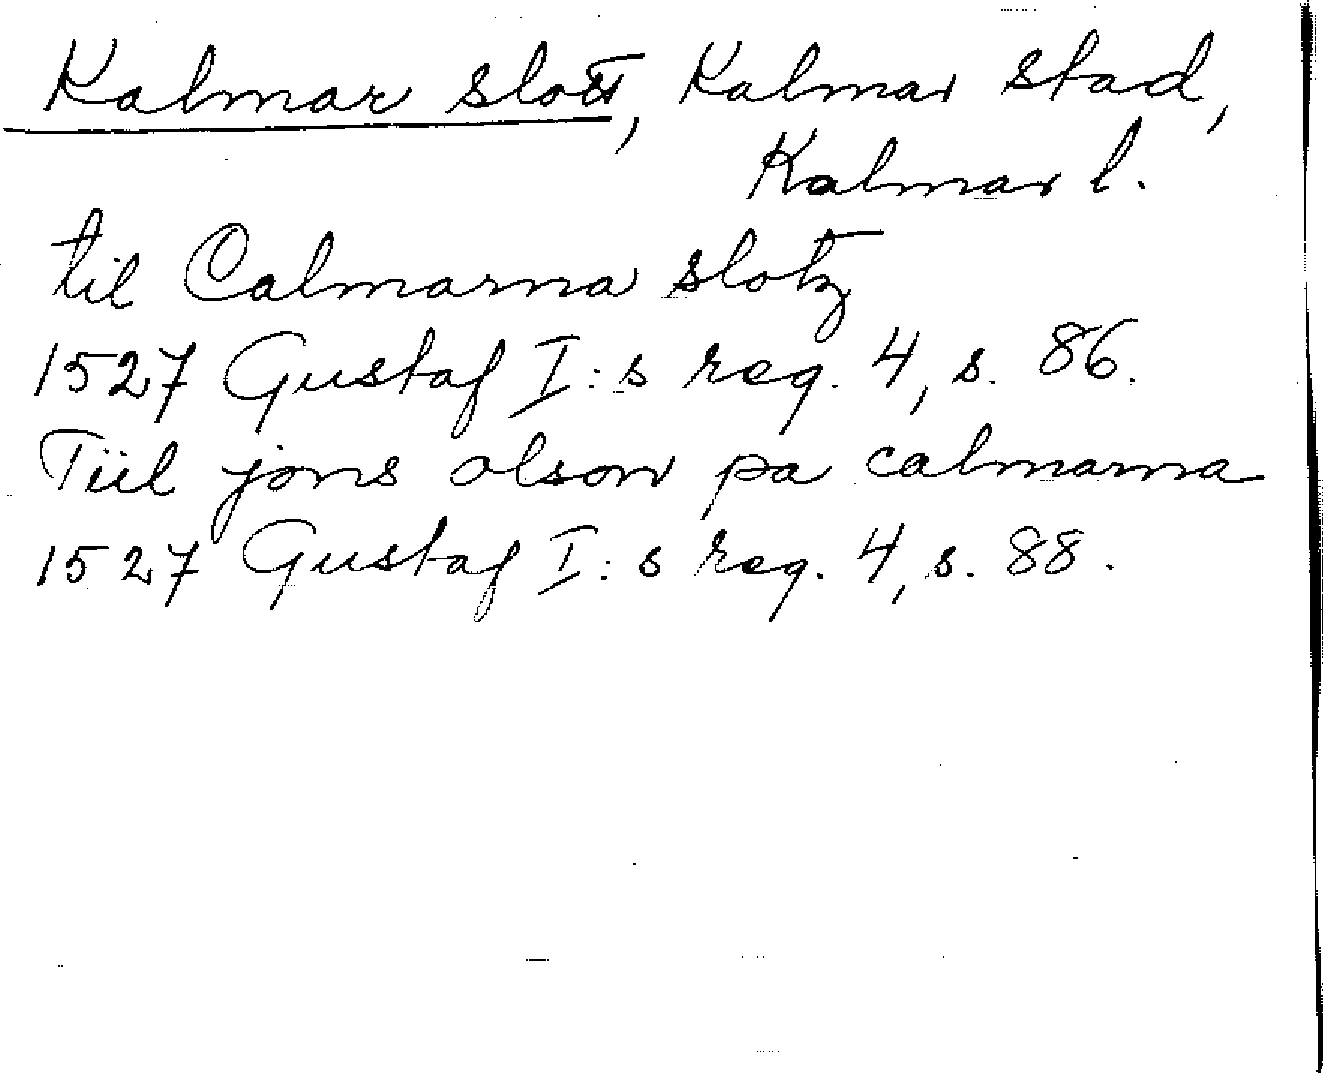 Kalmar slott, Kalmar stad,
Kalmar l.
til Calmarna slotz
1527 Gustaf I:s reg. 4, s. 86.
Tiil jöns olson pa calmarna
1527 Gustaf I:s reg. 4, s. 88.